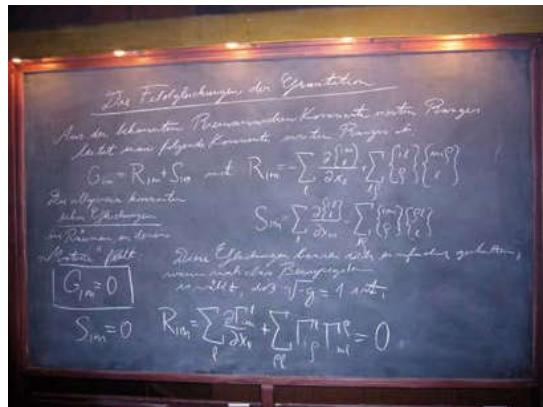 Die Feldgleichungen der Gravitation
Aus der bekannten Riemannschen Kovariante vierten Ranges
leitet man folgende Kovariante zweiten Ranges ab
G_{im} = R_{im} + S_{im} mit R_{im} = -∑_l ∂{im l}/∂x_l + ∑_{lρ} {il ρ}{mρ l}
Die allgemein kovarianten
Gleichungen
in Räumen in denen
"Materie" fehlt
S_{im} = ∑_l ∂{il l}/∂x_m - ∑_{lρ} {im ρ}{ρl l}
Diese Gleichungen lassen sich einfacher gestalten,
wenn man das Bezugssystem
so wählt, daß √-g = 1 wird,
G_{im} = 0
S_{im} = 0
R_{im} = ∑_l ∂Γ^l_{im}/∂x_l + ∑_{ρl} Γ^l_{iρ} Γ^ρ_{ml} = 0